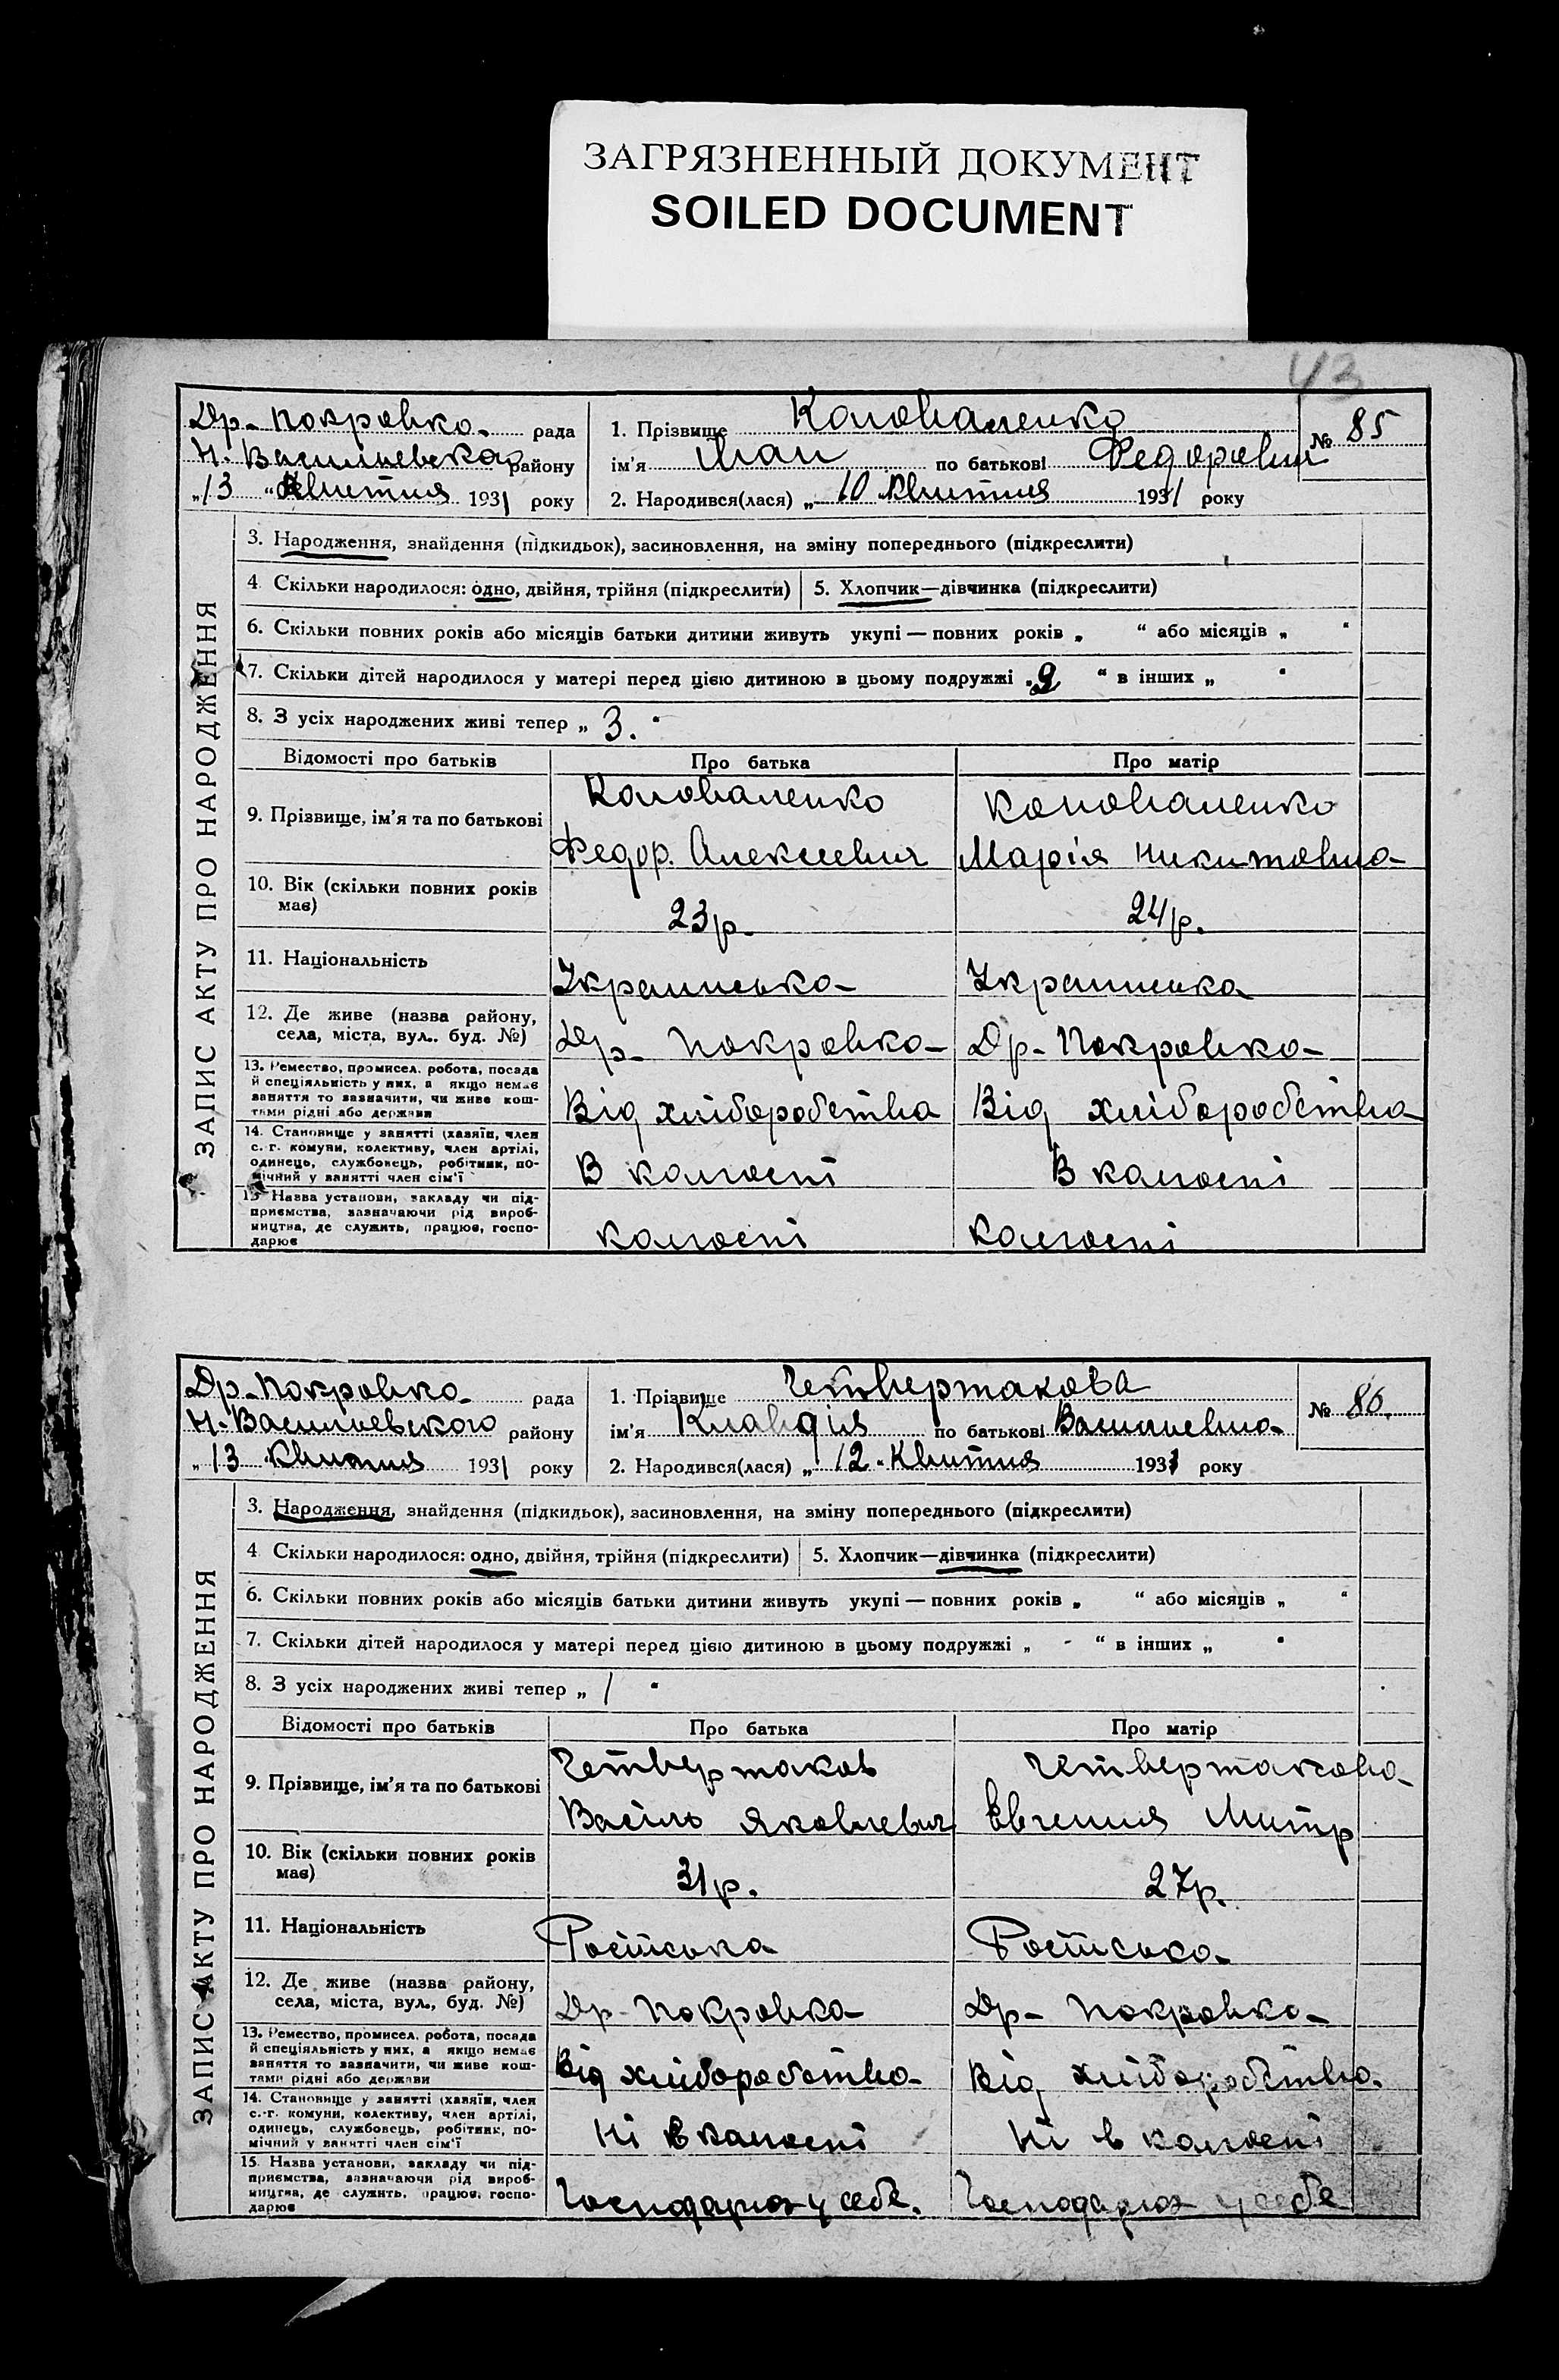 ЗАГРЯЗНЕННЫЙ ДОКУМЕНТ
SOILED DOCUMENT
43
Др-Покровка рада
Н. Васильевсько району
„13 “ квитня 1931 року
1. Прізвище Коноваленко
ім'я Иван по батькові Федорович
2. Народився(лася) „ 10 квитня 1931 року
№ 85
ЗАПИС АКТУ ПРО НАРОДЖЕННЯ
3. Народження, знайдення (підкидьок), засиновлення, на зміну попереднього (підкреслити)
4 Скільки народилося: одно, двійня, трійня (підкреслити) 5. Хлопчик—дівчинка (підкреслити)
6. Скільки повних років або місяців батьки дитини живуть укупі — повних років „ “ або місяців „ “
7. Скільки дітей народилося у матері перед цією дитиною в цьому подружжі „2 “ в інших „ “
8. З усіх народжених живі тепер „ 3. “
Відомості про батьків Про батька Про матір
9. Прізвище, ім'я та по батькові
Коноваленко
Федор. Алексеевич
Коноваленко
Марія Никитовна
10. Вік (скільки повних років
має)
23 р.
24 р.
11. Національність
Українська
Українська
12. Де живе (назва району,
села, міста, вул.. буд. №)
Др- Покровка
Др- Покровка
13. Ремество, промисел, робота, посада
й спеціяльність у них, а якщо немає
заняття то зазначити, чи живе кош-
тами рідні або держави
Від хліборобства
Від хліборобства
14. Становище у занятті (хазяїн, член
с.-г. комуни, колективу, член артілі,
одинець, службовець, робітник, по-
мічний у занятті член сім'ї
В колгоспі
В колгоспі
15. Назва установи, закладу чи під-
приємства, зазначаючи рід вироб-
ництва, де служить, працює, госпо-
дарює
колгоспі
колгоспі
Др-Покровка рада
Н-Васильевского району
„13 квитня 1931 року
1. Прізвище Четвертакова
ім'я Клавдія по батькові Васильевна
2. Народився(лася) „ 12 “ квитня 1931 року
№ 86.
ЗАПИС АКТУ ПРО НАРОДЖЕННЯ
3. Народження, знайдення (підкидьок), засиновлення, на зміну попереднього (підкреслити)
4 Скільки народилося: одно, двійня, трійня (підкреслити) 5. Хлопчик—дівчинка (підкреслити)
6. Скільки повних років або місяців батьки дитини живуть укупі — повних років „ “ або місяців „ “
7. Скільки дітей народилося у матері перед цією дитиною в цьому подружжі „ - “ в інших „ “
8. З усіх народжених живі тепер „ 1 “
Відомості про батьків Про батька Про матір
9. Прізвище, ім'я та по батькові
Четвертаков
Василь Яковлевич
Четвертакова
Евгения Митр
10. Вік (скільки повних років
має)
31 р.
27 р.
11. Національність
Російська
Російська
12. Де живе (назва району,
села, міста, вул., буд. №)
Др- Покровка
Др- Покровка
13. Ремество, промисел, робота, посада
й спеціяльність у них, а якщо немає
заняття то зазначити, чи живе кош-
тами рідні або держави
Від хліборобства
Від хліборобства.
14. Становище у занятті (хазяїн, член
с.-г. комуни, колективу, член артілі,
одинець, службовець, робітник, по-
мічний у занятті член сім'ї
Ні в колгоспі
Ні в колгоспі
15. Назва установи, закладу чи під-
приємства, зазначаючи рід вироб-
ництва, де служить, працює, госпо-
дарює
Господарюя у себе.
Господарюя у себе